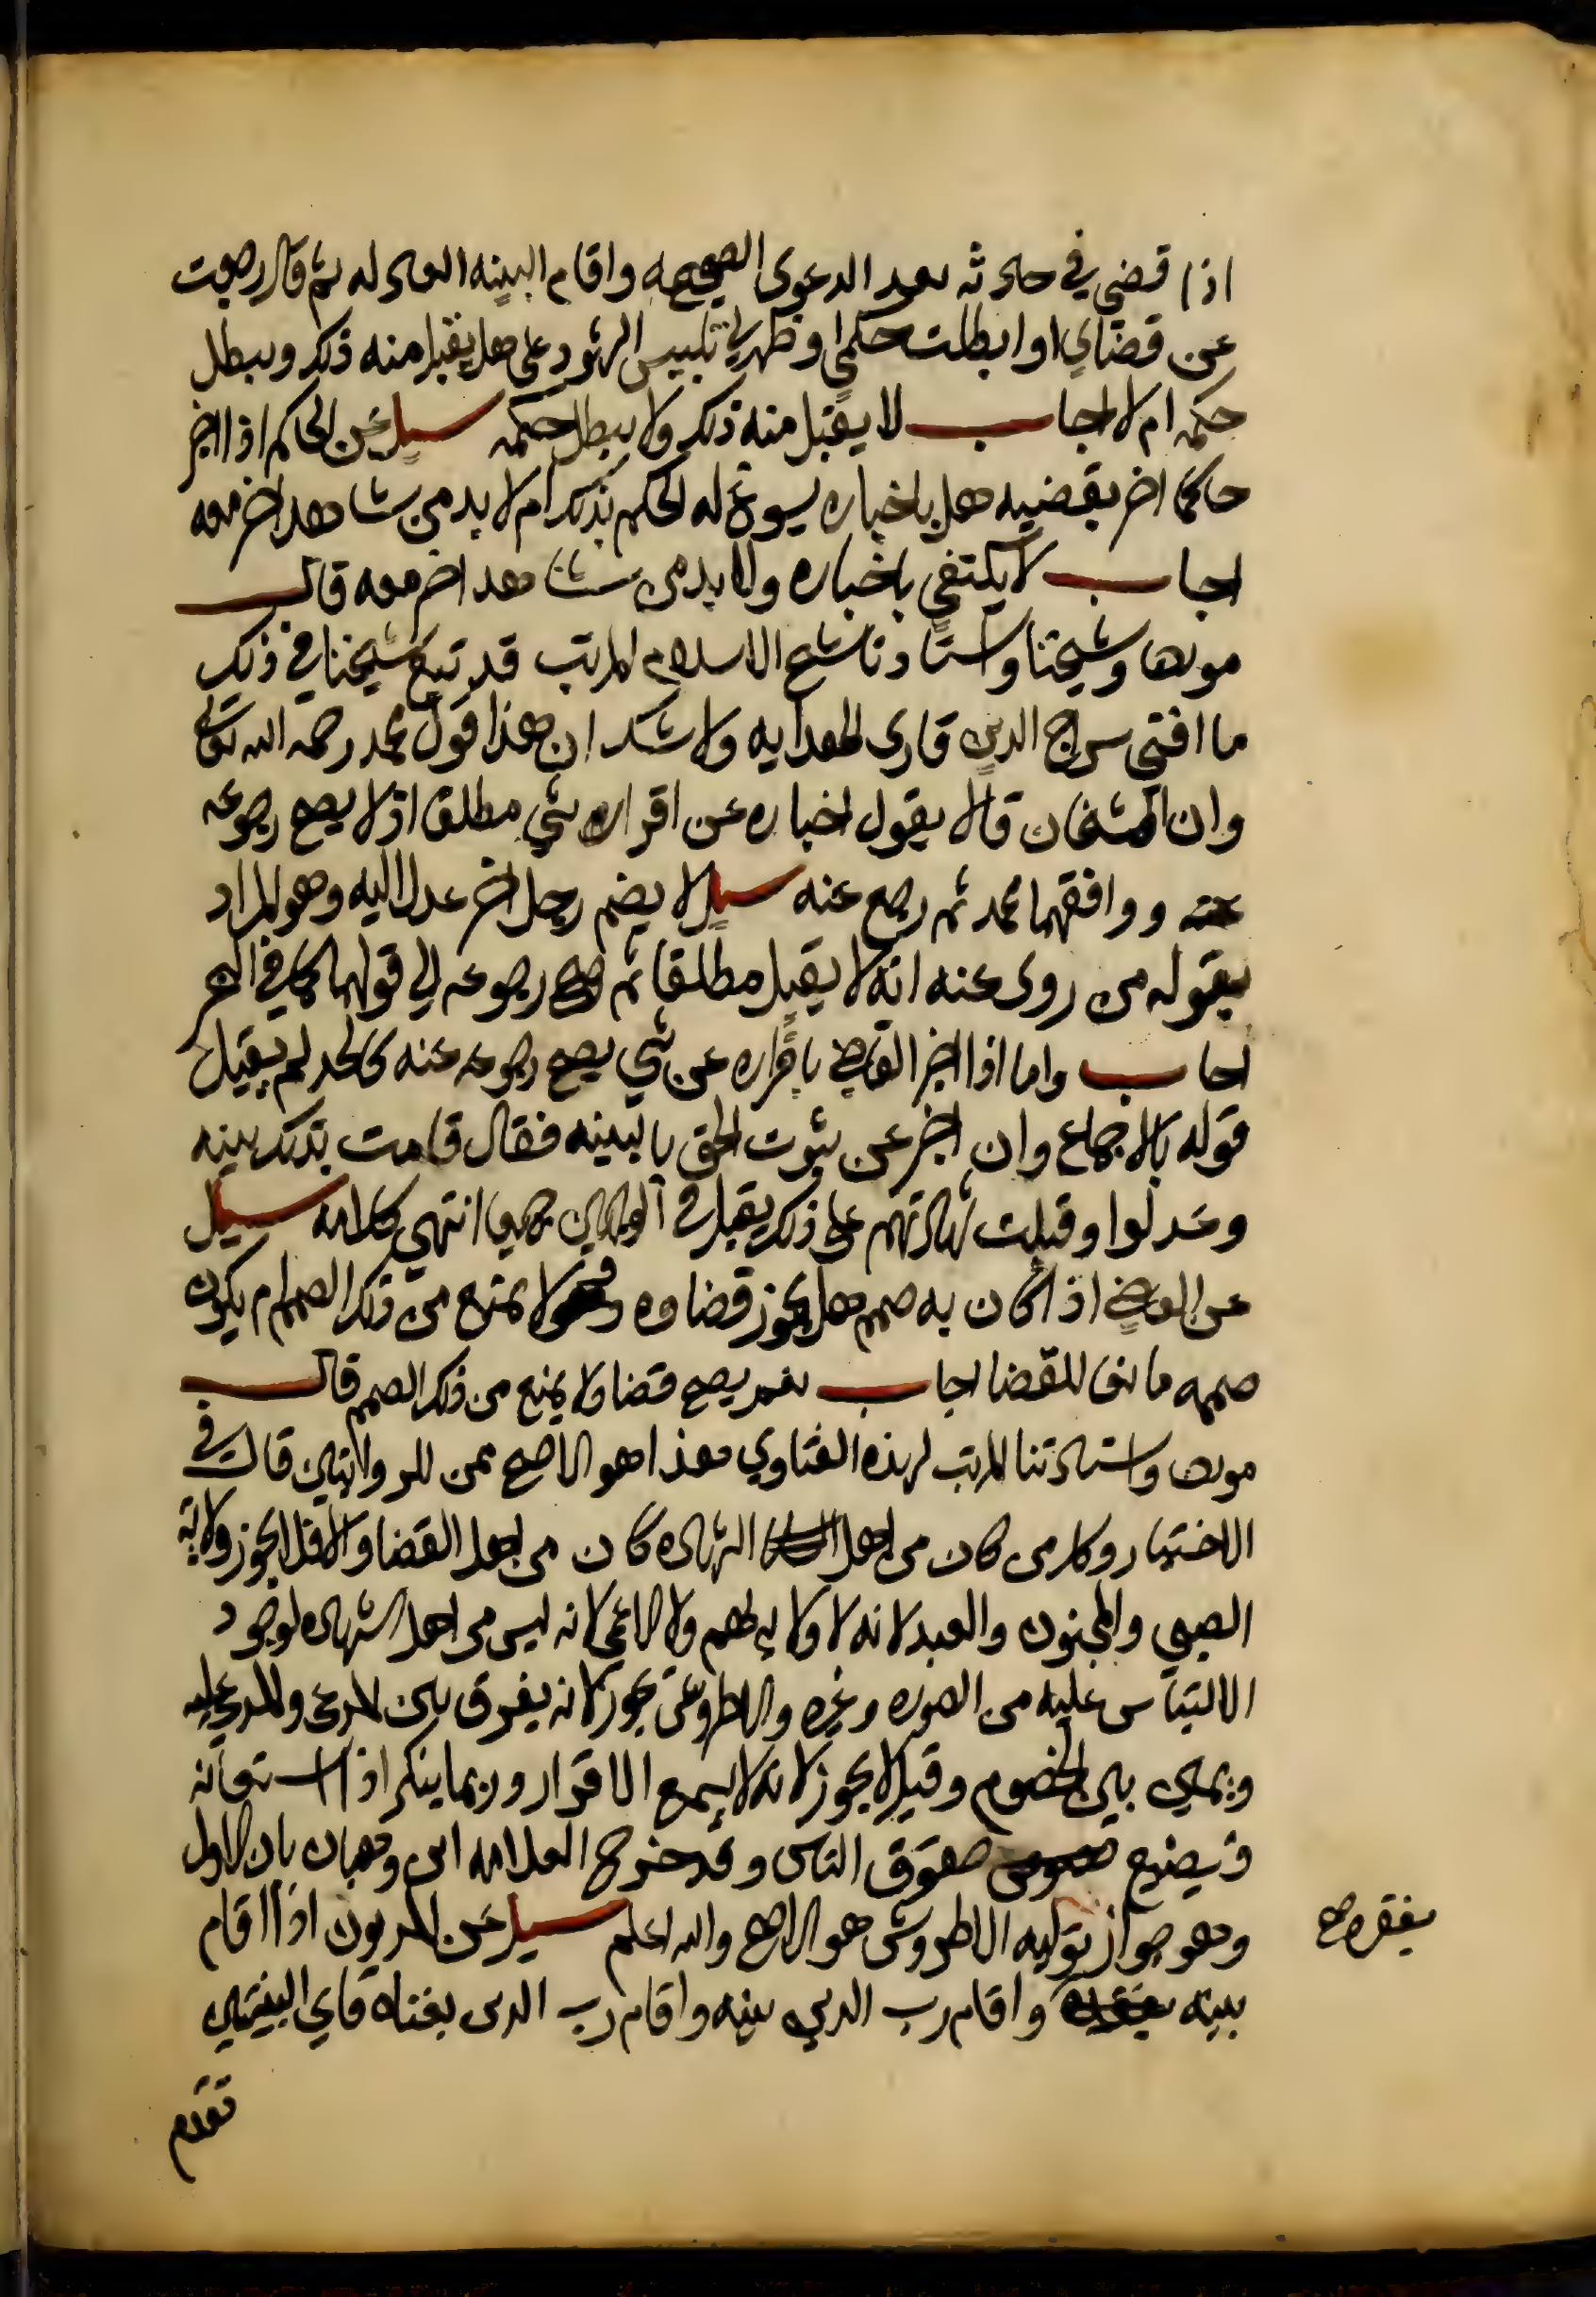 اذا قضي في حادثه بعد الدعوى الصحيحه واقام البينه العادله ثم قال رجعت
عن قضاي او ابطلت حكمي او ظهر لي تلبيس الشهود على هل يقبل منه ذلك ويبطل
حكمه ام لا اجاب لا يقبل منه ذلك ولا يبطل حكمه سيل عن الحاكم اذا اخبر
حاكما اخر بقضيه هل باخباره يسوغ له الحكم بذلك ام لا بد من شاهد اخر معه
اجاب لا يكتفي باخباره ولا بد من شاهد اخر معه قال
مولانا وشيخنا واستاذنا شيخ الاسلام المرتب قد تبع شيخنا في ذلك
ما افتي سراج الدين قاري الهدايه ولا شك ان هذا قول محمد رحمه الله تعالى
وان الشيخان قالا بقول اخباره عن اقراره بشي مطلقا اذ لا يصح رجوعه
عنه ووافقهما محمد ثم رجع عنه سيل لا يضم رجل اخر عدل اليه وهو المراد
بقوله من روى عنه انه لا يقبل مطلقا ثم صح رجوعه الى قولهما كما في البحر
اجاب واما اذا اخبر القاضي باقراره عن شي يصح رجوعه عنه كالحد لم يقبل
قوله بالاجماع وان اخبر عن ثبوت الحق بالبينه فقال قامت بذلك بينه
وعدلوا وقبلت شهادتهم على ذلك يقبل في الوجهين جميعا انتهى كلامه سيل
عن القاضي اذا كان به صمم هل يجوز قضاوه ولا يمنع من ذلك الصمم ام يكون
صممه مانعا للقضا اجاب نعم يصح قضا ولا يمنع من ذلك الصمم قال
مولانا واستاذنا المرتب لهذه الفتاوي هذا هو الاصح من الروايتين قال في
الاختيار وكل من كان من اهل الشهاده كان من اهل القضا والا فلا يجوز ولايه
الصبي والمجنون والعبد لانه لا ولايه لهم ولا الاعمى لانه ليس من اهل الشهاده لوجود
الالتباس عليه من الصوره وغيره والاطروش يجوز لانه يفرق بين المدعي والمدعى عليه
ويميز بين الخصوم وقيل لا يجوز لانه لا يسمع الاقرار وربما ينكر اذا استعانه
فيضيع حقوق الناس وقد صرح العلامه ابن وهبان بان الاول
وهو جواز توليه الاطروش هو الاصح والله اعلم سيل عن المديون اذا اقام
بينه واقام رب الدين بينه واقام رب الدين بغناه فاي البينتين
بفقره صح
تقدم